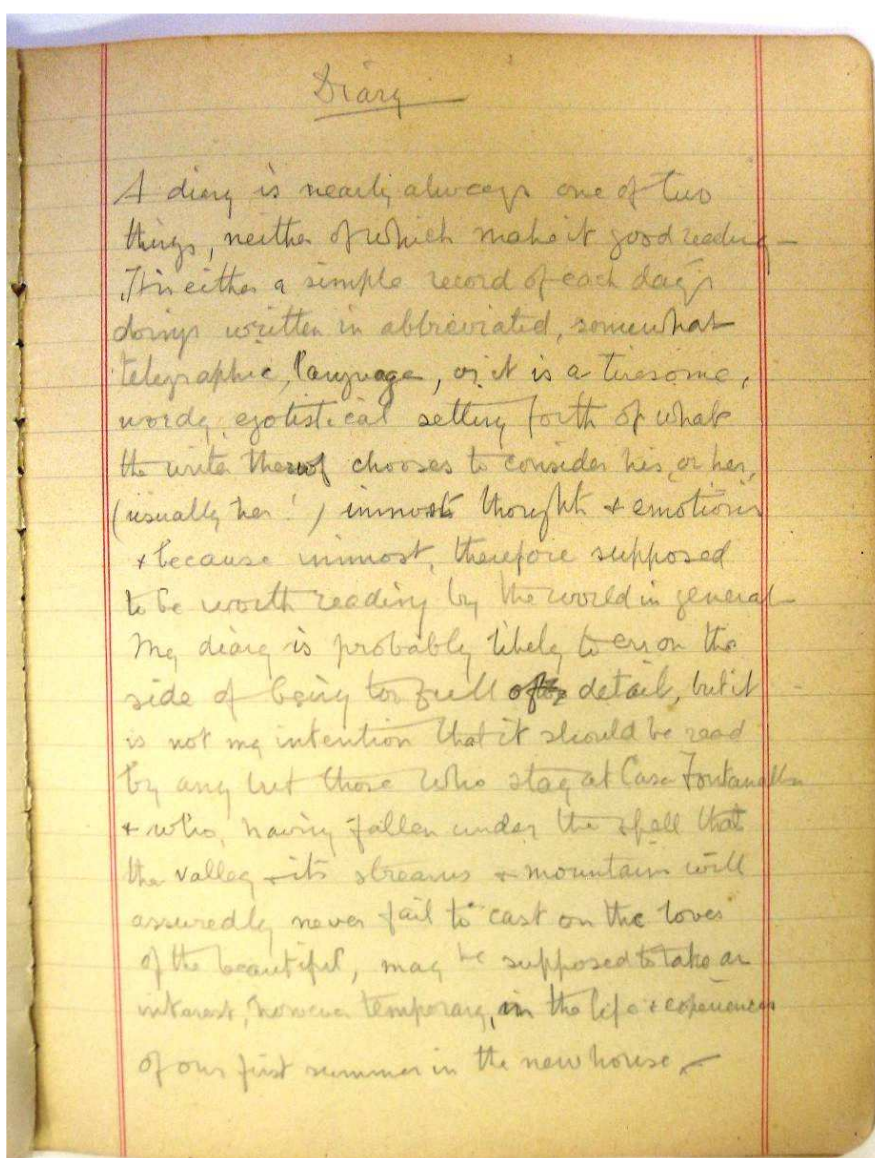 Diary
A diary is nearly always one of two
things, neither of which make it good reading –
It is either a simple record of each day's
doings written in abbreviated, somewhat
telegraphic, language, or it is a tiresome,
wordy, egotistical setting forth of what
the writer thereof chooses to consider his, or her,
(usually her!) inmost thoughts & emotions
& because inmost, therefore supposed
to be worth reading by the world in general –
My diary is probably likely to err on the
side of being too full of detail, but it
is not my intention that it should be read
by any but those who stay at Casa Fontanalba
& who, having fallen under the spell that
the valley & its streams & mountains will
assuredly never fail to cast on the lover
of the beautiful, may be supposed to take an
interest, however temporary, in the life & experiences
of our first summer in the new house –